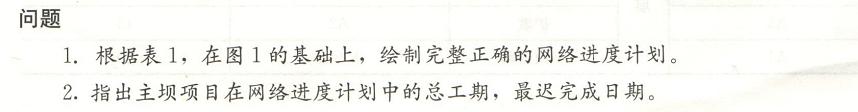 问题
1. 根据表1，在图1的基础上，绘制完整正确的网络进度计划。
2. 指出主坝项目在网络进度计划中的总工期，最迟完成日期。